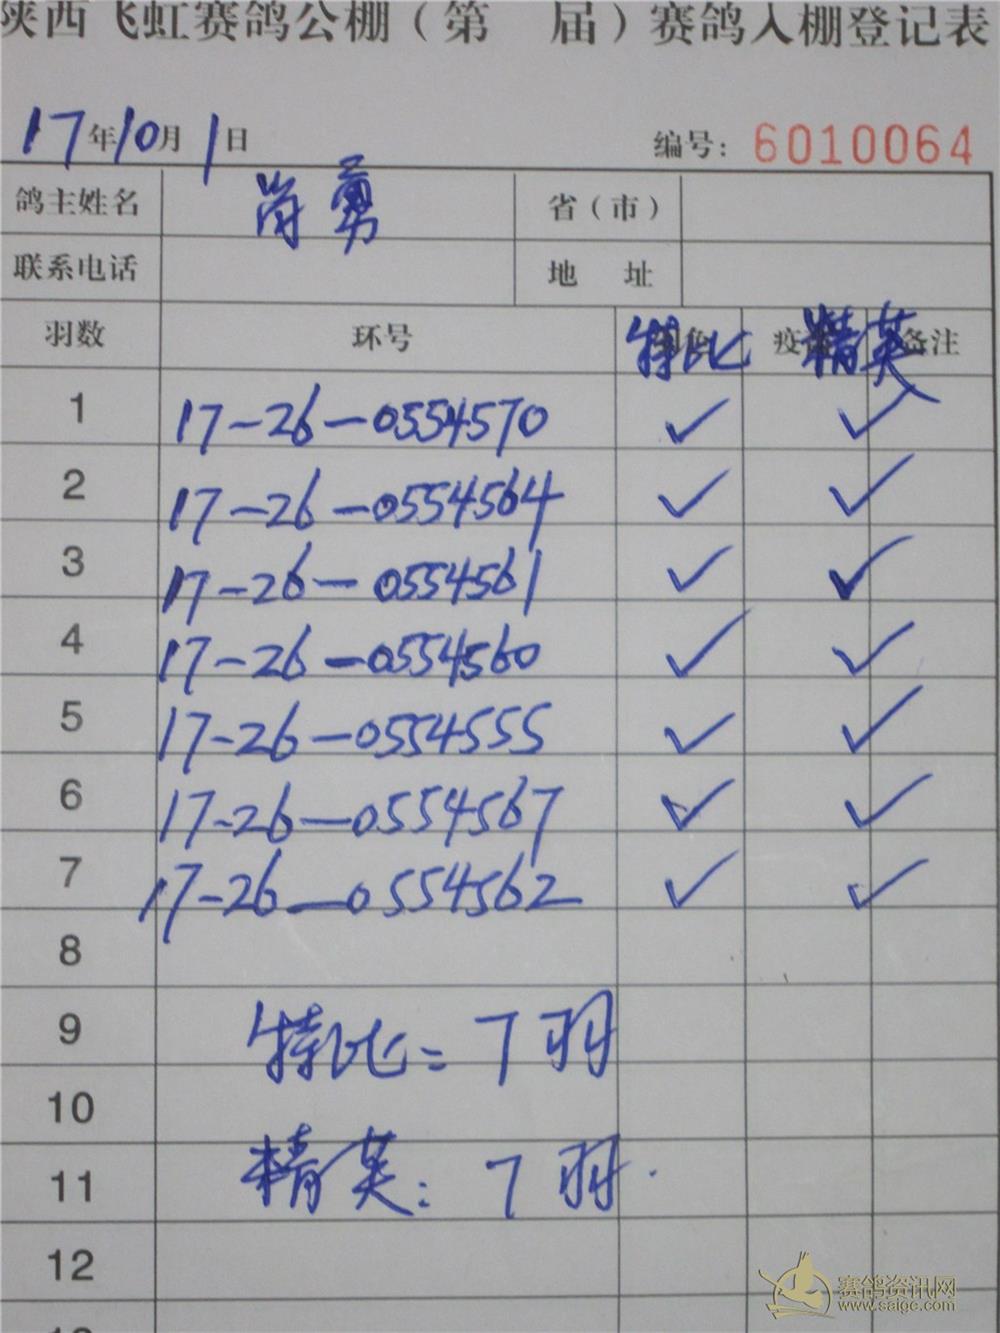 陕西飞虹赛鸽公棚（第 届）赛鸽入棚登记表
17年10月1日 编号：6010064
鸽主姓名 肖勇 省（市）
联系电话 地 址
羽数 环号 特比 疫 精英 备注
1 17-26-0554570 ✓ ✓
2 17-26-0554564 ✓ ✓
3 17-26-0554561 ✓ ✓
4 17-26-0554560 ✓ ✓
5 17-26-0554555 ✓ ✓
6 17-26-0554567 ✓ ✓
7 17-26-0554562 ✓ ✓
8
9 特比：7羽
10
11 精英：7羽
12
赛鸽资讯网
www.saigc.com